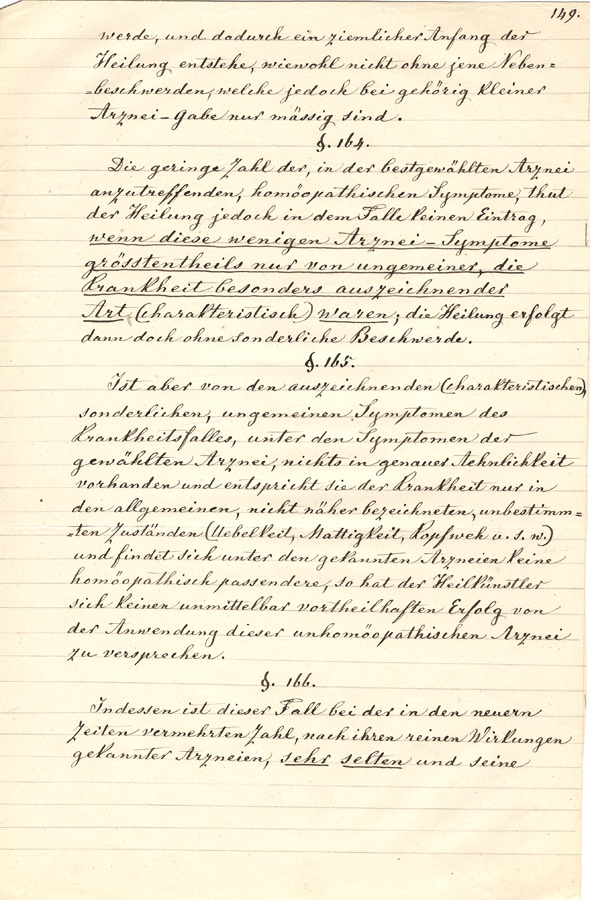 149.
werde, und dadurch ein ziemlicher Anfang der
Heilung entstehe, wiewohl nicht ohne jene Neben=
=beschwerden, welche jedoch bei gehörig kleiner
Arznei-Gabe nur mässig sind.
§. 164.
Die geringe Zahl der, in der bestgewählten Arznei
anzutreffenden, homöopathischen Symptome, thut
der Heilung jedoch in dem Falle keinen Eintrag,
wenn diese wenigen Arznei-Symptome
grösstentheils nur von ungemeiner, die
Krankheit besonders auszeichnender
Art (charakteristisch) waren; die Heilung erfolgt
dann doch ohne sonderliche Beschwerde.
§. 165.
Ist aber von den auszeichnenden (charakteristischen),
sonderlichen, ungemeinen Symptomen des
Krankheitsfalles, unter den Symptomen der
gewählten Arznei, nichts in genauer Aehnlichkeit
vorhanden und entspricht sie der Krankheit nur in
den allgemeinen, nicht näher bezeichneten, unbestimm=
=ten Zuständen (Uebelkeit, Mattigkeit, Kopfweh u. s. w.)
und findet sich unter den gekannten Arzneien keine
homöopathisch passendere, so hat der Heilkünstler
sich keinen unmittelbar vortheilhaften Erfolg von
der Anwendung dieser unhomöopathischen Arznei
zu versprechen.
§. 166.
Indessen ist dieser Fall bei der in den neuern
Zeiten vermehrten Zahl, nach ihren reinen Wirkungen
gekannter Arzneien, sehr selten und seine